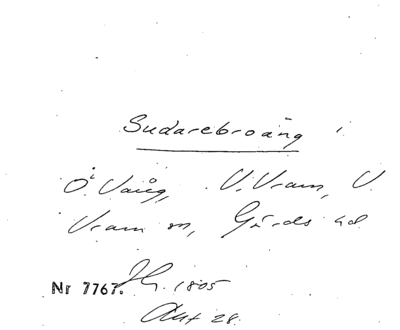 Sudarebroäng i
Ö. Vång, V. Vram, V.
Vram sn, Gärds hd
Nr 7767. 1805
Akt 28.